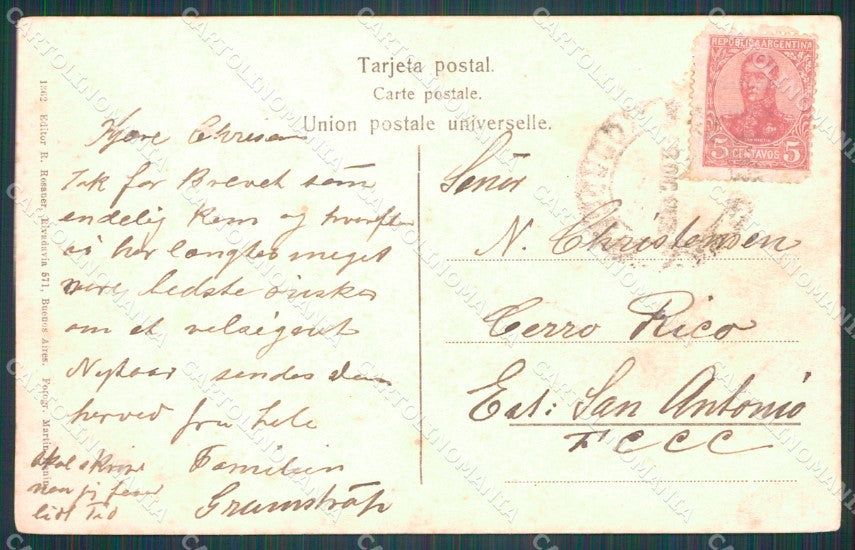 Tarjeta postal.
Carte postale.
Union postale universelle.
REPUBLICA ARGENTINA
5 CENTAVOS 5
1362 Editor R. Rosauer, Rivadavia 571, Buenos Aires. Fotogr. Martin
Kjære Chrisen
Tak for Brevet som
endelig kom og hvorfter
vi har længtes meget
vore bedste ønsker
om et velsignet
Nytaar sendes dem
herved fra hele
Familien
Grumstrap
skal skrive
naar jeg faaer
lidt Tid
Señor
N. Christensen
Cerro Rico
Est: San Antonio
F C C C
CARTOLINOMANIA